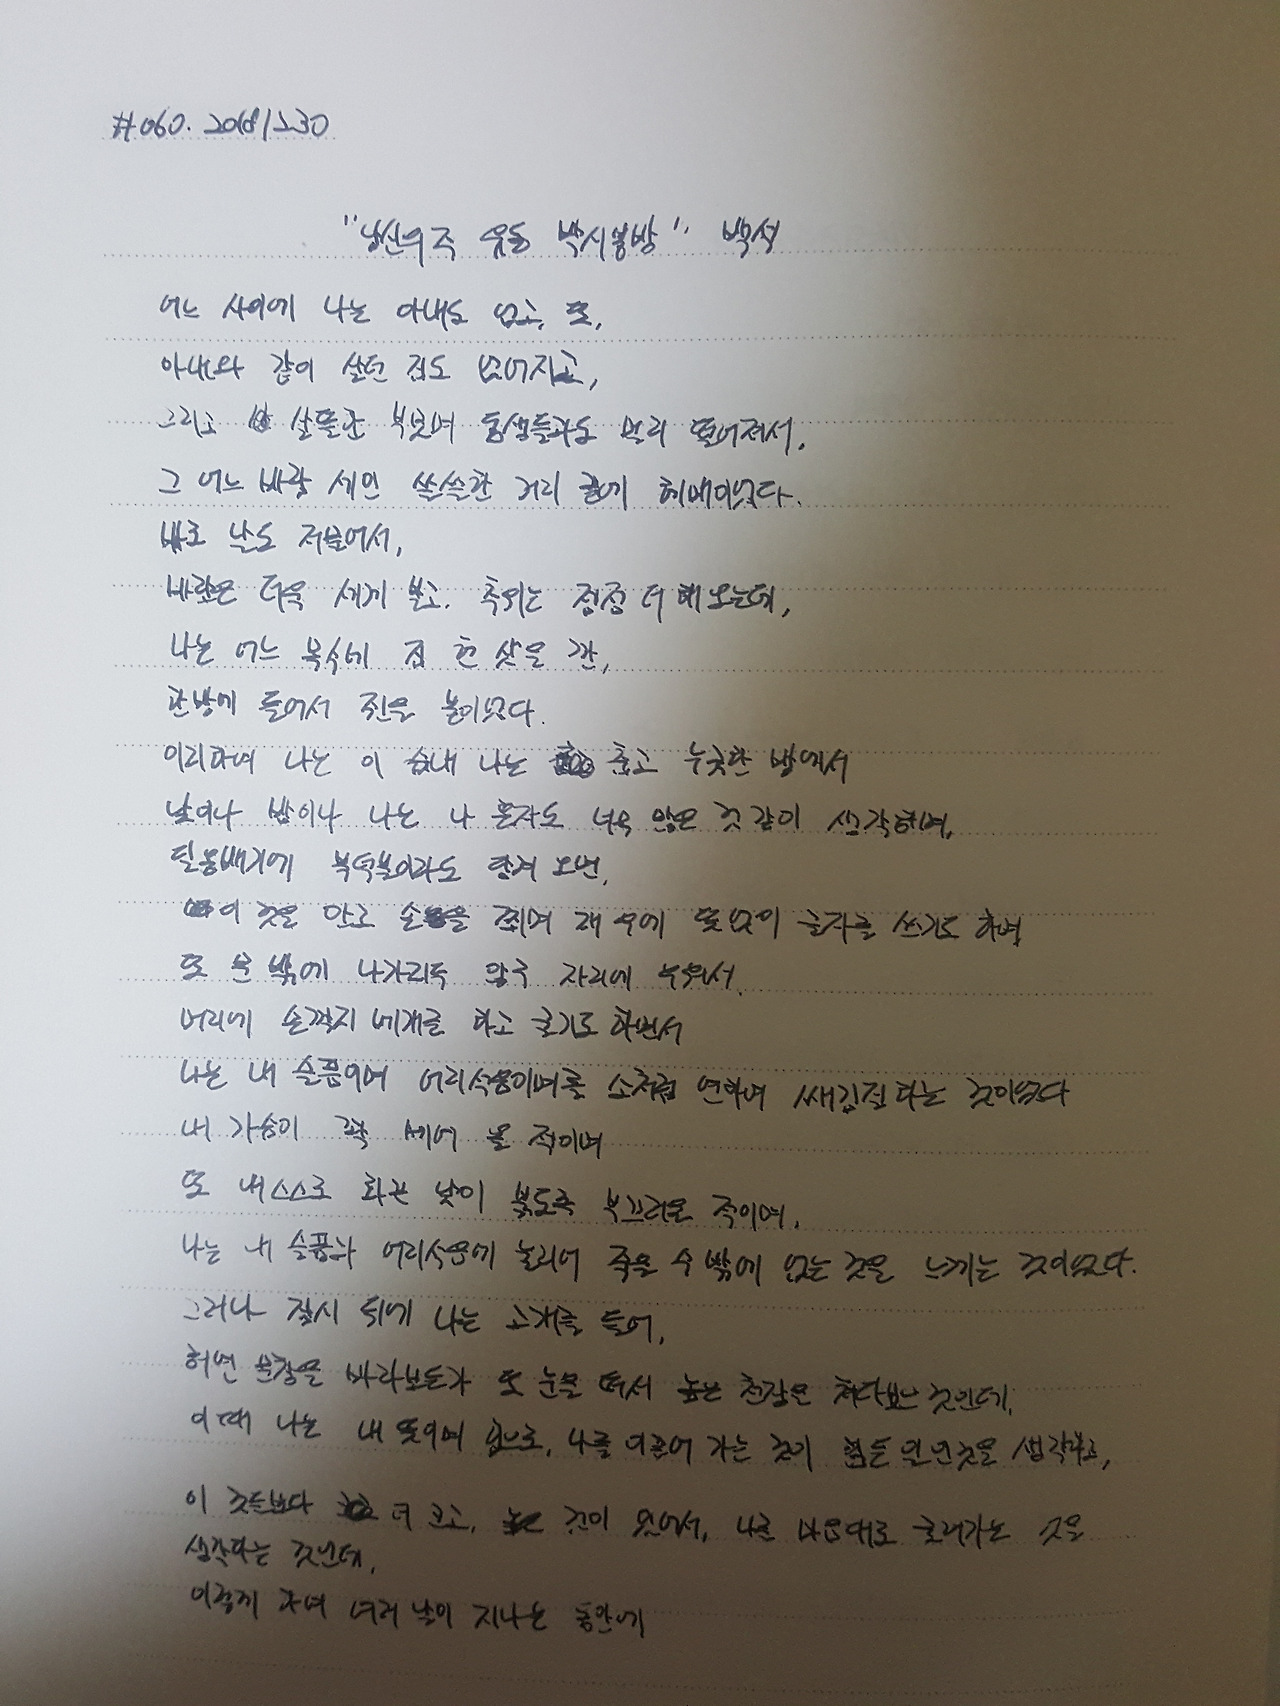 #060. 20181230
"남신의주 유동 박시봉방", 백석
어느 사이에 나는 아내도 없고, 또,
아내와 같이 살던 집도 없어지고,
그리고 살뜰한 부모며 동생들과도 멀리 떨어져서,
그 어느 바람 세인 쓸쓸한 거리 끝에 헤매이었다.
바로 날도 저물어서,
바람은 더욱 세게 불고, 추위는 점점 더해 오는데,
나는 어느 목수네 집 헌 샅을 깐,
한방에 들어서 쥔을 붙이었다.
이리하여 나는 이 습내 나는 춥고 누긋한 방에서
낮이나 밤이나 나는 나 혼자도 너무 많은 것 같이 생각하며,
딜옹배기에 북덕불이라도 담겨 오면,
이것을 안고 손을 쬐며 재 우에 뜻없이 글자를 쓰기도 하며
또 문 밖에 나가리두 않구 자리에 누워서,
머리에 손깍지 베개를 하고 굴기도 하면서
나는 내 슬픔이며 어리석음이며를 소처럼 연하여 쌔김질하는 것이었다
내 가슴이 꽉 메어 올 적이며
또 내 스스로 화끈 낯이 붉도록 부끄러울 적이며,
나는 내 슬픔과 어리석음에 눌리어 죽을 수 밖에 없는 것을 느끼는 것이었다.
그러나 잠시 뒤에 나는 고개를 들어,
허연 문창을 바라보든가 또 눈을 떠서 높은 천장을 쳐다보는 것인데,
이 때 나는 내 뜻이며 힘으로, 나를 이끌어 가는 것이 힘든 일인것을 생각하고,
이 것들보다 더 크고, 높은 것이 있어서, 나를 마음대로 굴려가는 것을
생각하는 것인데,
이렇게 하여 여러 날이 지나는 동안에